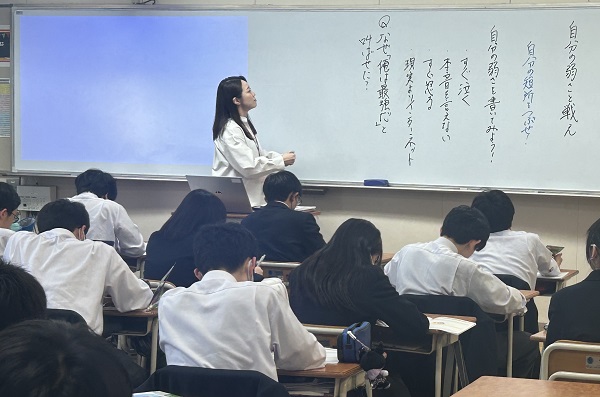 自分の弱さと戦え
自分の短所をつぶせ!
自分の弱さを書いてみよう!
・すぐ泣く
・本音を言えない
・すぐ怒る
・現実よりインターネット
Q なぜ、「俺は最強だ」と
叫ばせた?